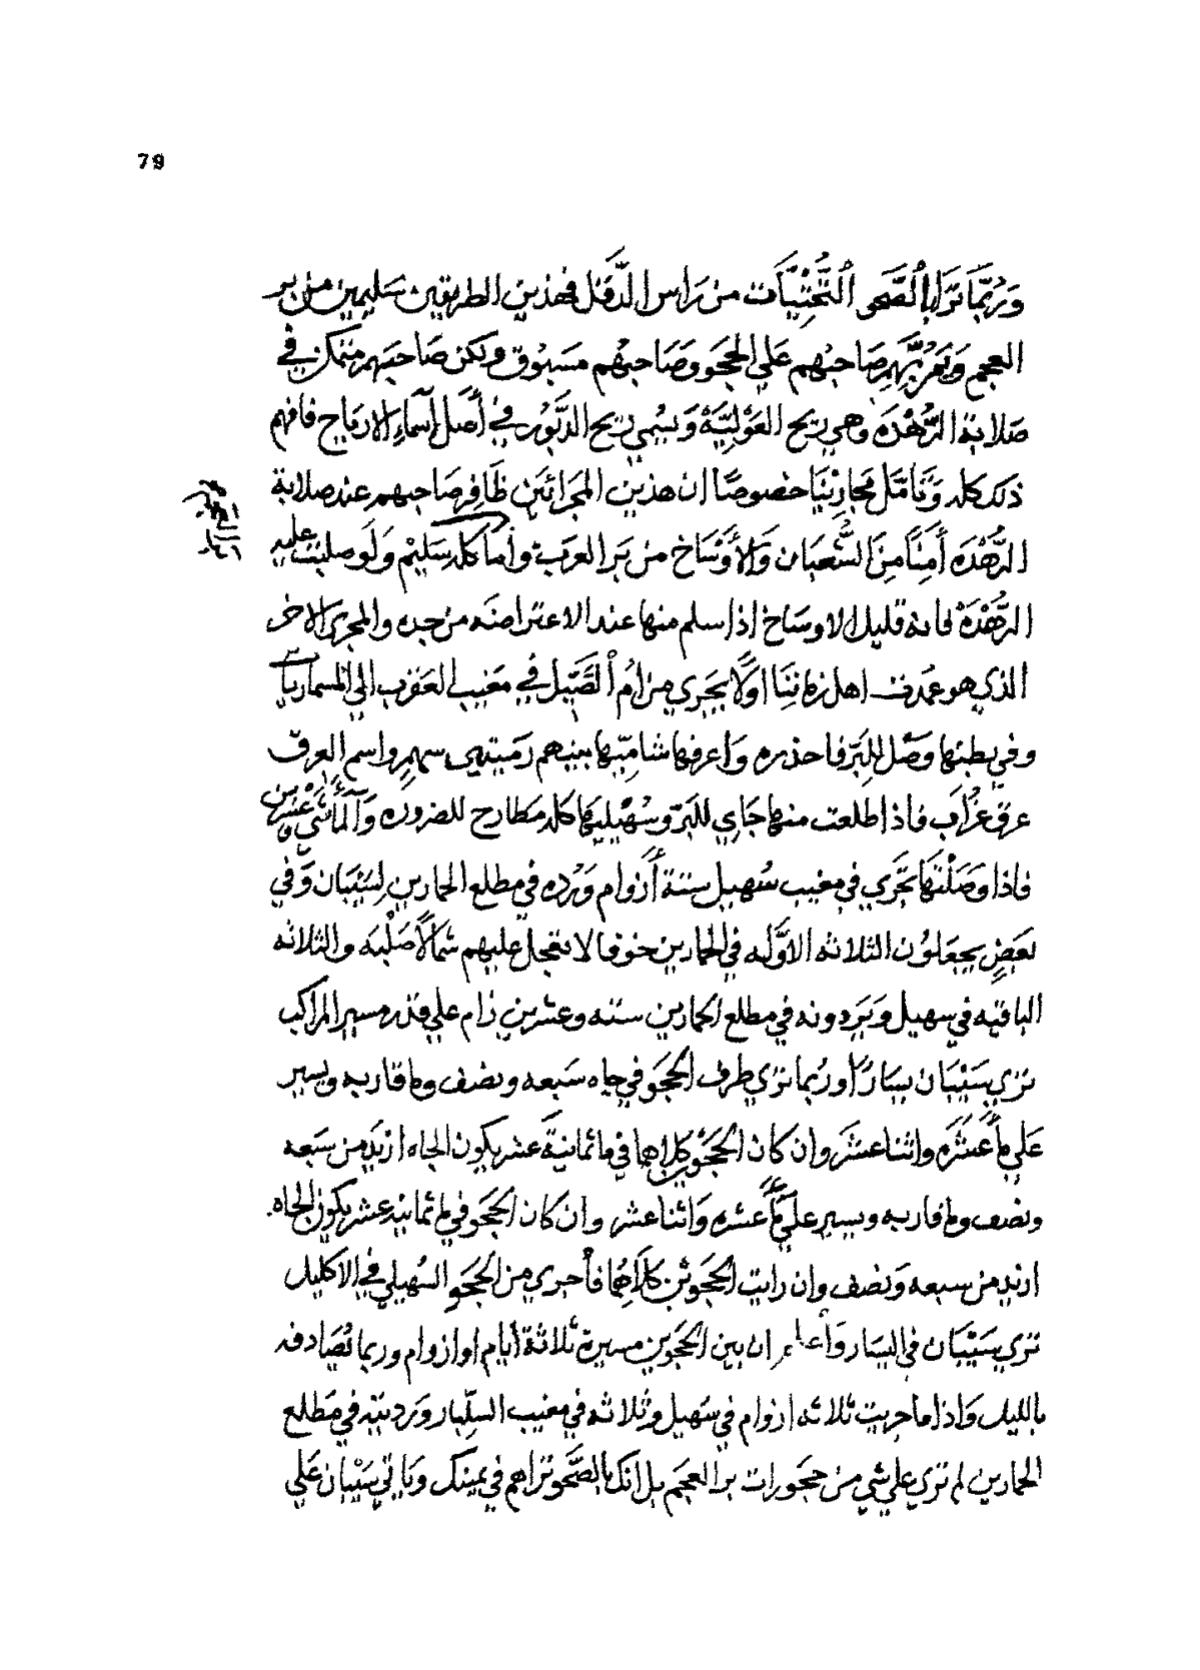 79
وَرُبَّمَا تَرَا بِالصَّحو التَّحْتِيَّات من رَاس الدَّقَل فهذين الطريقين سَليمين من بر
العجم وَيَمرّ بهم صَاحبُهم عَلي الحجَو وَصَاحبُهم مَسبُوق ولكن صَاحبَهم متمكن في
صَلابة الرُّهْدَه وهي ريح العَوْليَّة وَيسُمي ريح الدَّبُور في أصَل أسمآءِ الارياح فافهم
ذلك كله وَتَامَّل مجَاريْنَا خصُوصًا ان هذين المجرائَين ظَافِر صَاحبهم عند صلابة
الرُّهْدَه أَمِنًا مِنَ الشُّعبَان وَالأوْسَاخ من بَر العرَب وأمَا كله سَليْم وَلَو صلبت عليه
الرُّهْدَهْ فانه قليل الاوسَاخ اذا سلم منها عند الاعتراضَه من جده والمجري الاخر
الذي هو عُمدة اهل زمانِنَا اوَّلًا يجَري من امُ الصَّيَل في مَغيب العَقرب الي المسماريات
وفي بطنها وَصَل للبَرّ فاحذره وَاعرفها شاميّها بينهم رَميتين سهم واسم العرق
عرق غُرَاب فاذا طلعت منها جَاري للبَرّ وسُهْيليهَا كله مَطارح للضروره وَالمأ ثني عَشْر
فاذا وَصَلْتهَا تجَري في مغيب سُهيل ستة أزوام وَرُده في مطلع الحمارين لِسَيْبَان وَفي
بَعَضٍ يجعَلوُن الثلاثه الاوَّله في الحمارين خوفا لا تعَجل عليهم شمَالًا صَلْبَه والثلاثه
الباقيه في سهيل وَيَرِدونه في مطلع الحمارين ستّه وعشرين زام علي قدر مسير المراكب
تري سَيْبَان يسَارًا وربُما تري طرف الحجَو في جاه سَبعه ونصف وما قاربه ويسير
عَلي مأ عَشَرَه واثنا عشَر وان كان الحجَوْين كلاهما في ما ثمانيةَ عشر يكون الجاه ازيَد من سَبعه
ونصف وما قاربه ويسير علي مأ عشره وَاثنا عشر وان كان الحجَو في ما ثمانية عشر يكون الجاه
ازيد من سبعه وَنصف وان رايت الحجَوين كلاهُما فأجري من الحجَو السُهيلي في الاكليل
تري سَيْبَان في اليسَار وَأعلم ان بين الحجَوين مسيرة ثلاثة أيام او ازوام وربما تُصَادفه
بالليل وَاذا ما جريت ثلاثه ازوام في سُهيل وثلاثه في مغيب السلّبار وَرديته في مَطلع
الحمارين لم تري علي شي من حجَورات بر العجَم بل انك بالصَّحو تراهم في يمينك وَياتي سَيْبان عَلي